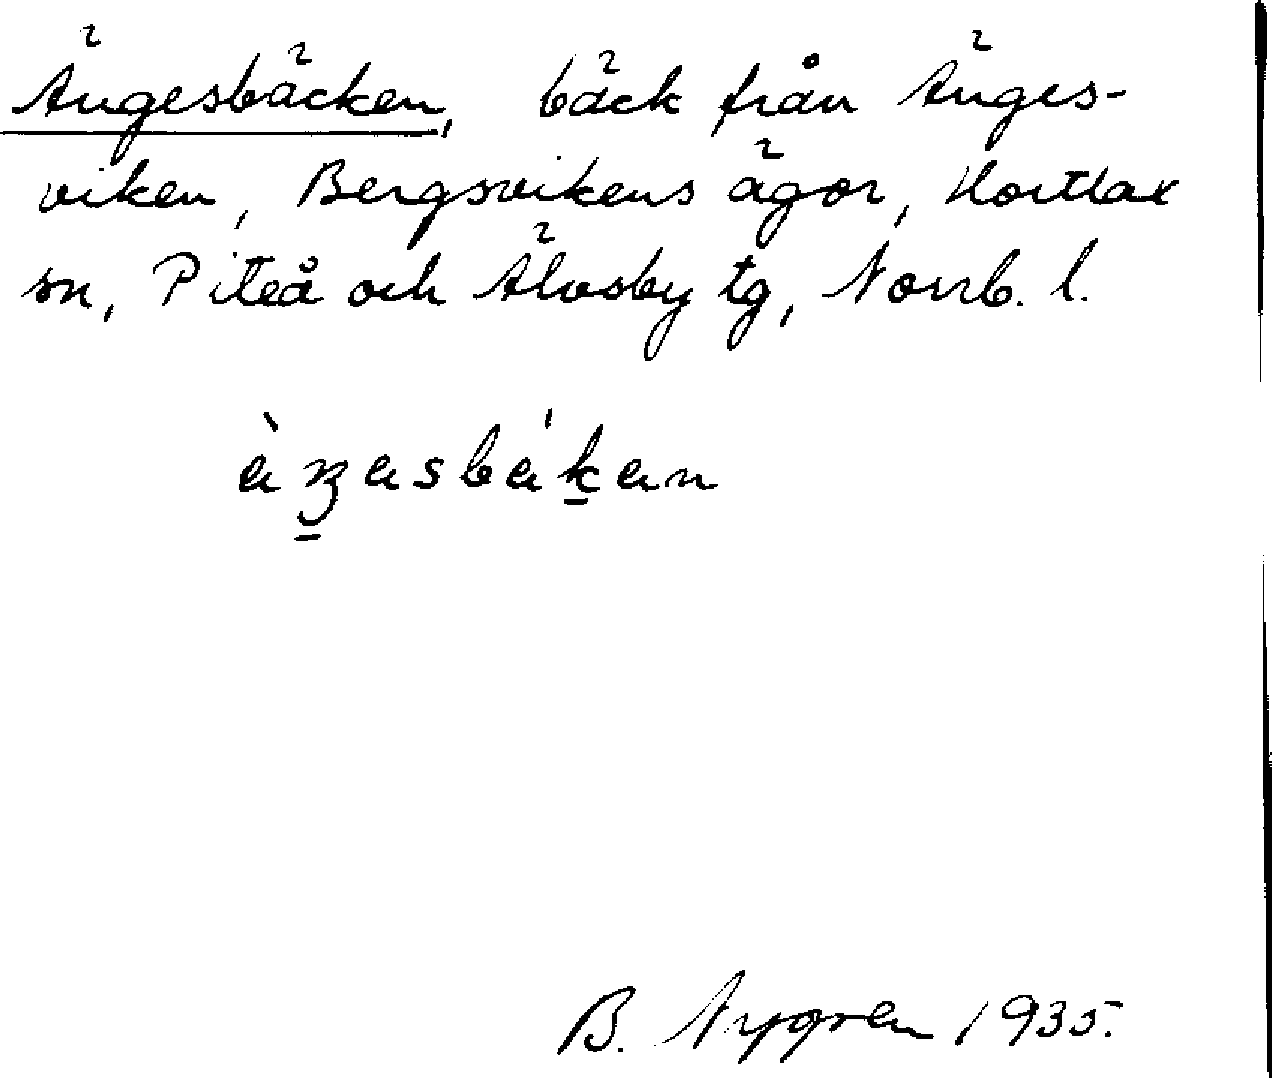 Ängesbäcken, bäck från Änges-
viken, Bergsvikens ägor, Hortlax
sn, Piteå och Älvsby tg, Norrb. l.
B. Nygren 1935.